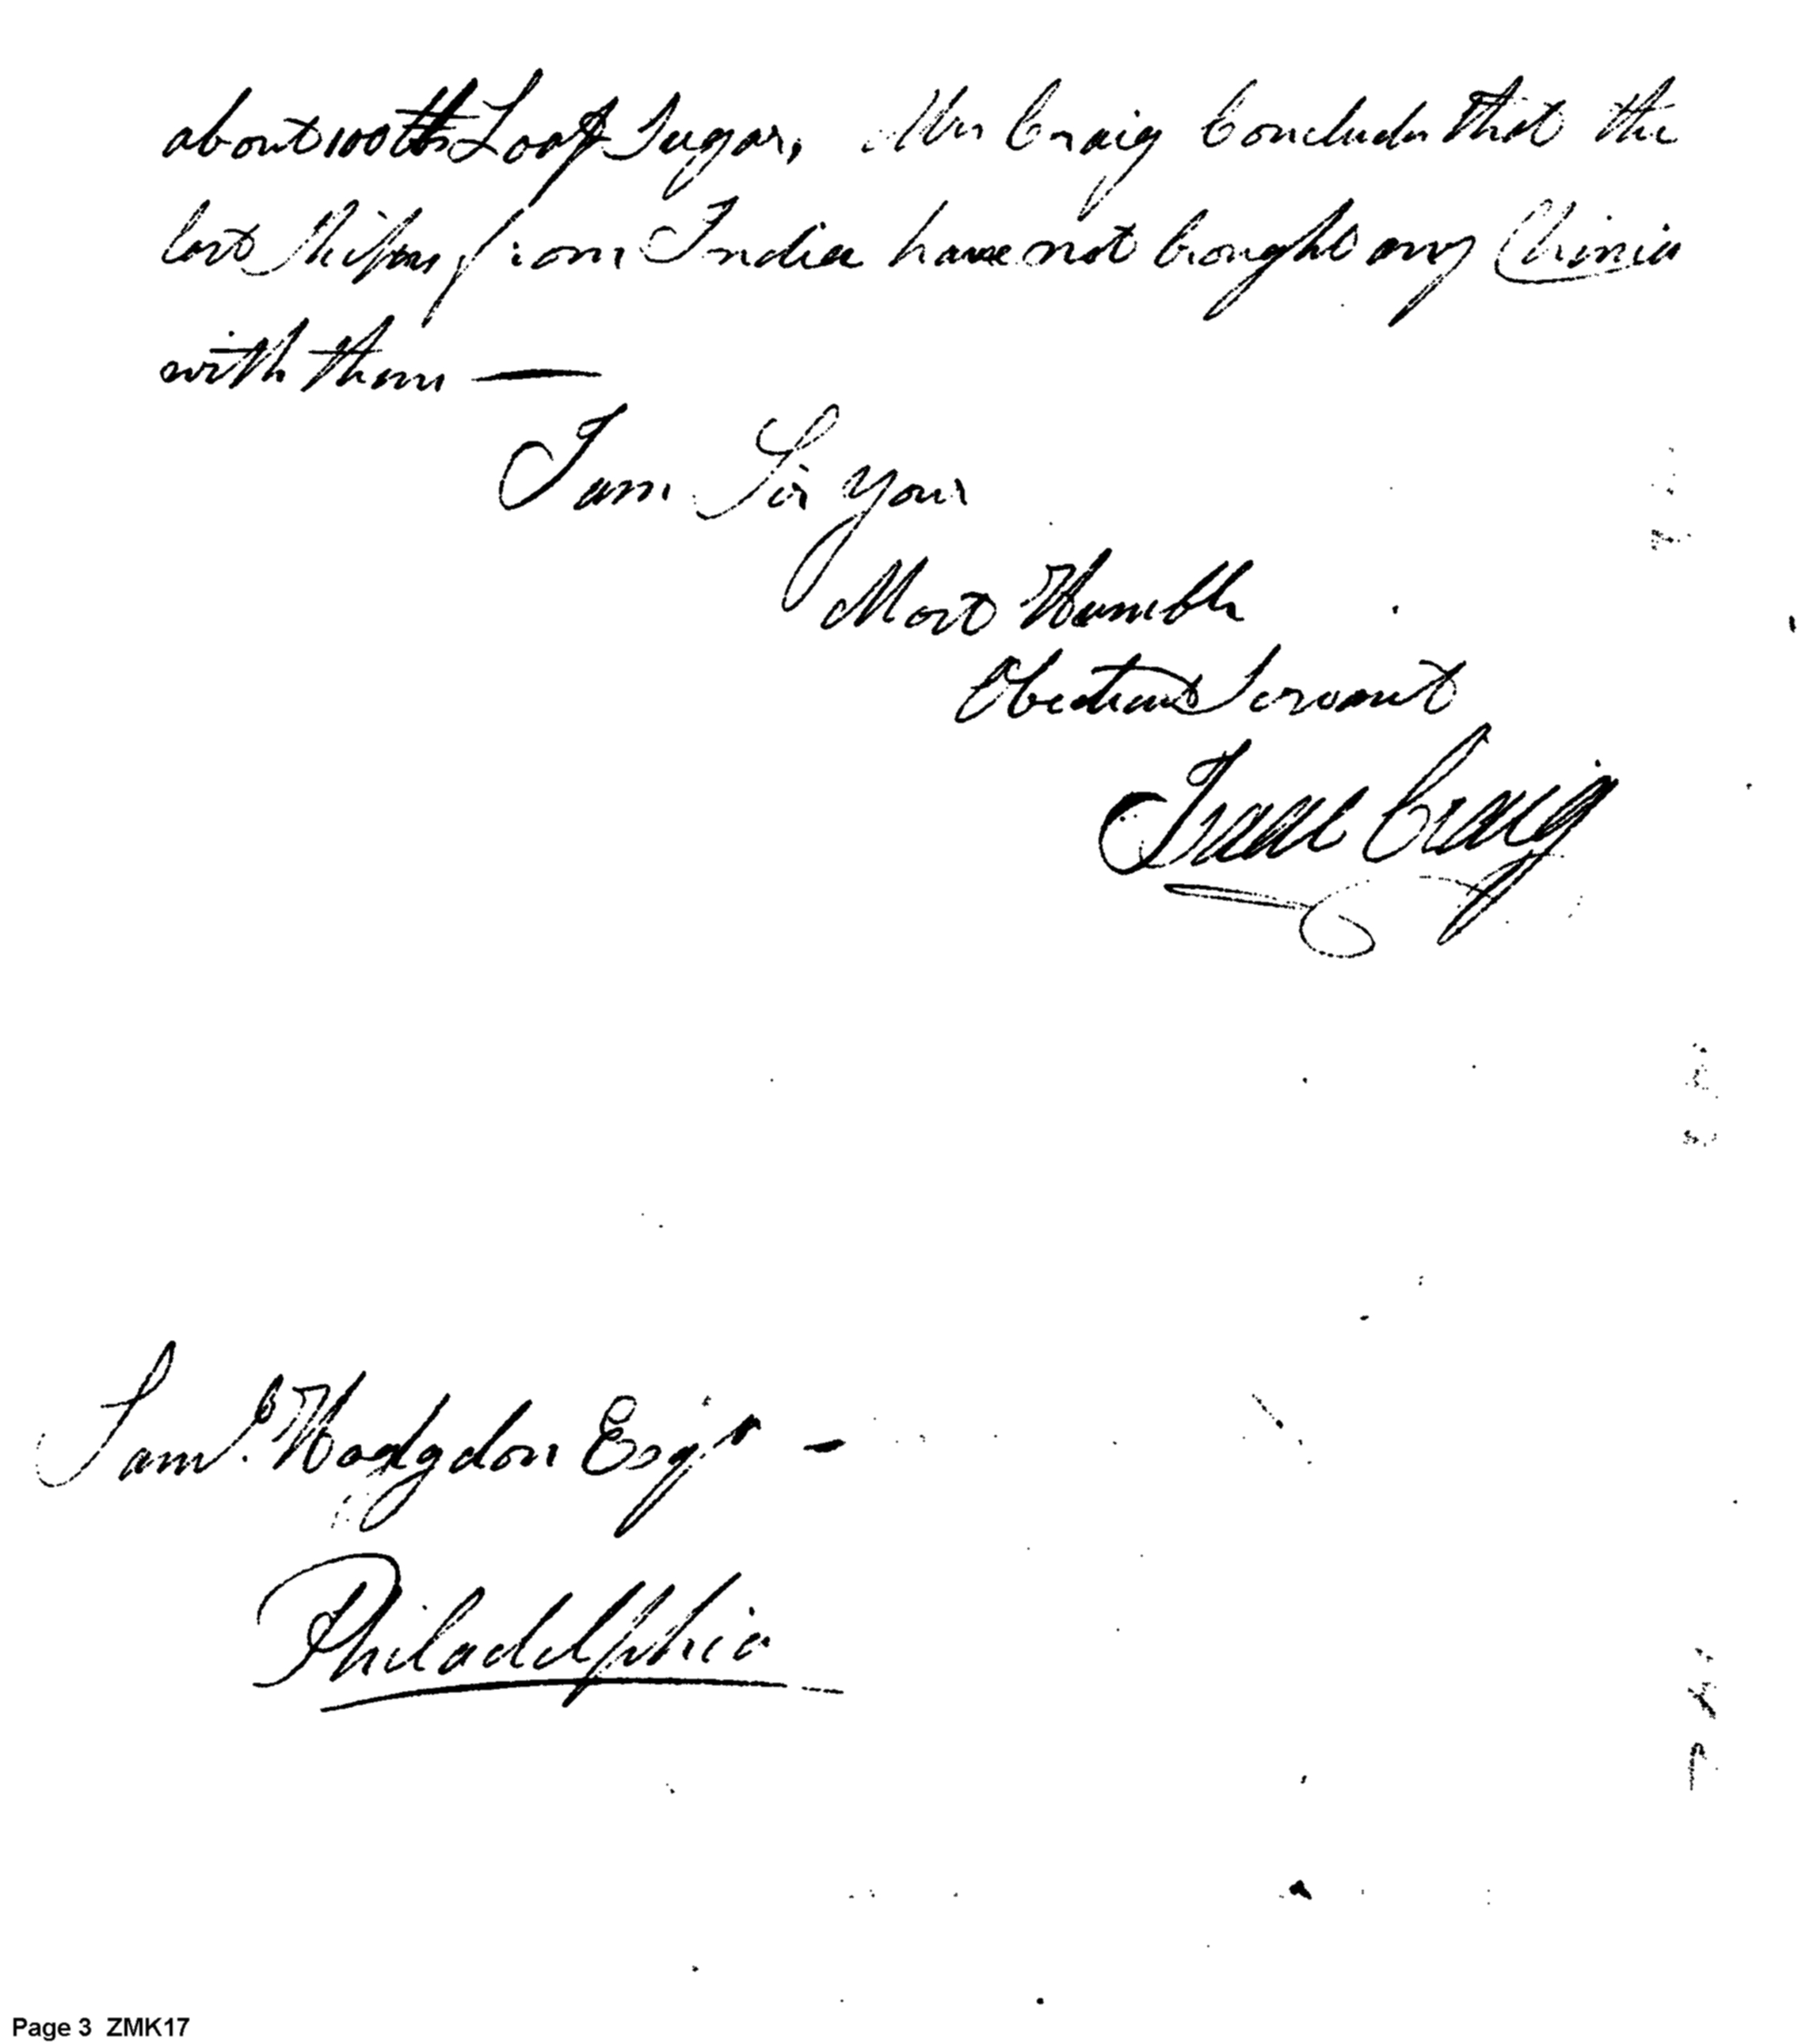 about 100 lb Loaf Sugar, Mrs Craig Concludes that the
last Ships from India have not brought any China
with them —
I am Sir your
Most Humble
Obedient Servant
Isaac Craig
Saml. Hodgdon Esqr —
Philadelphia
Page 3 ZMK17